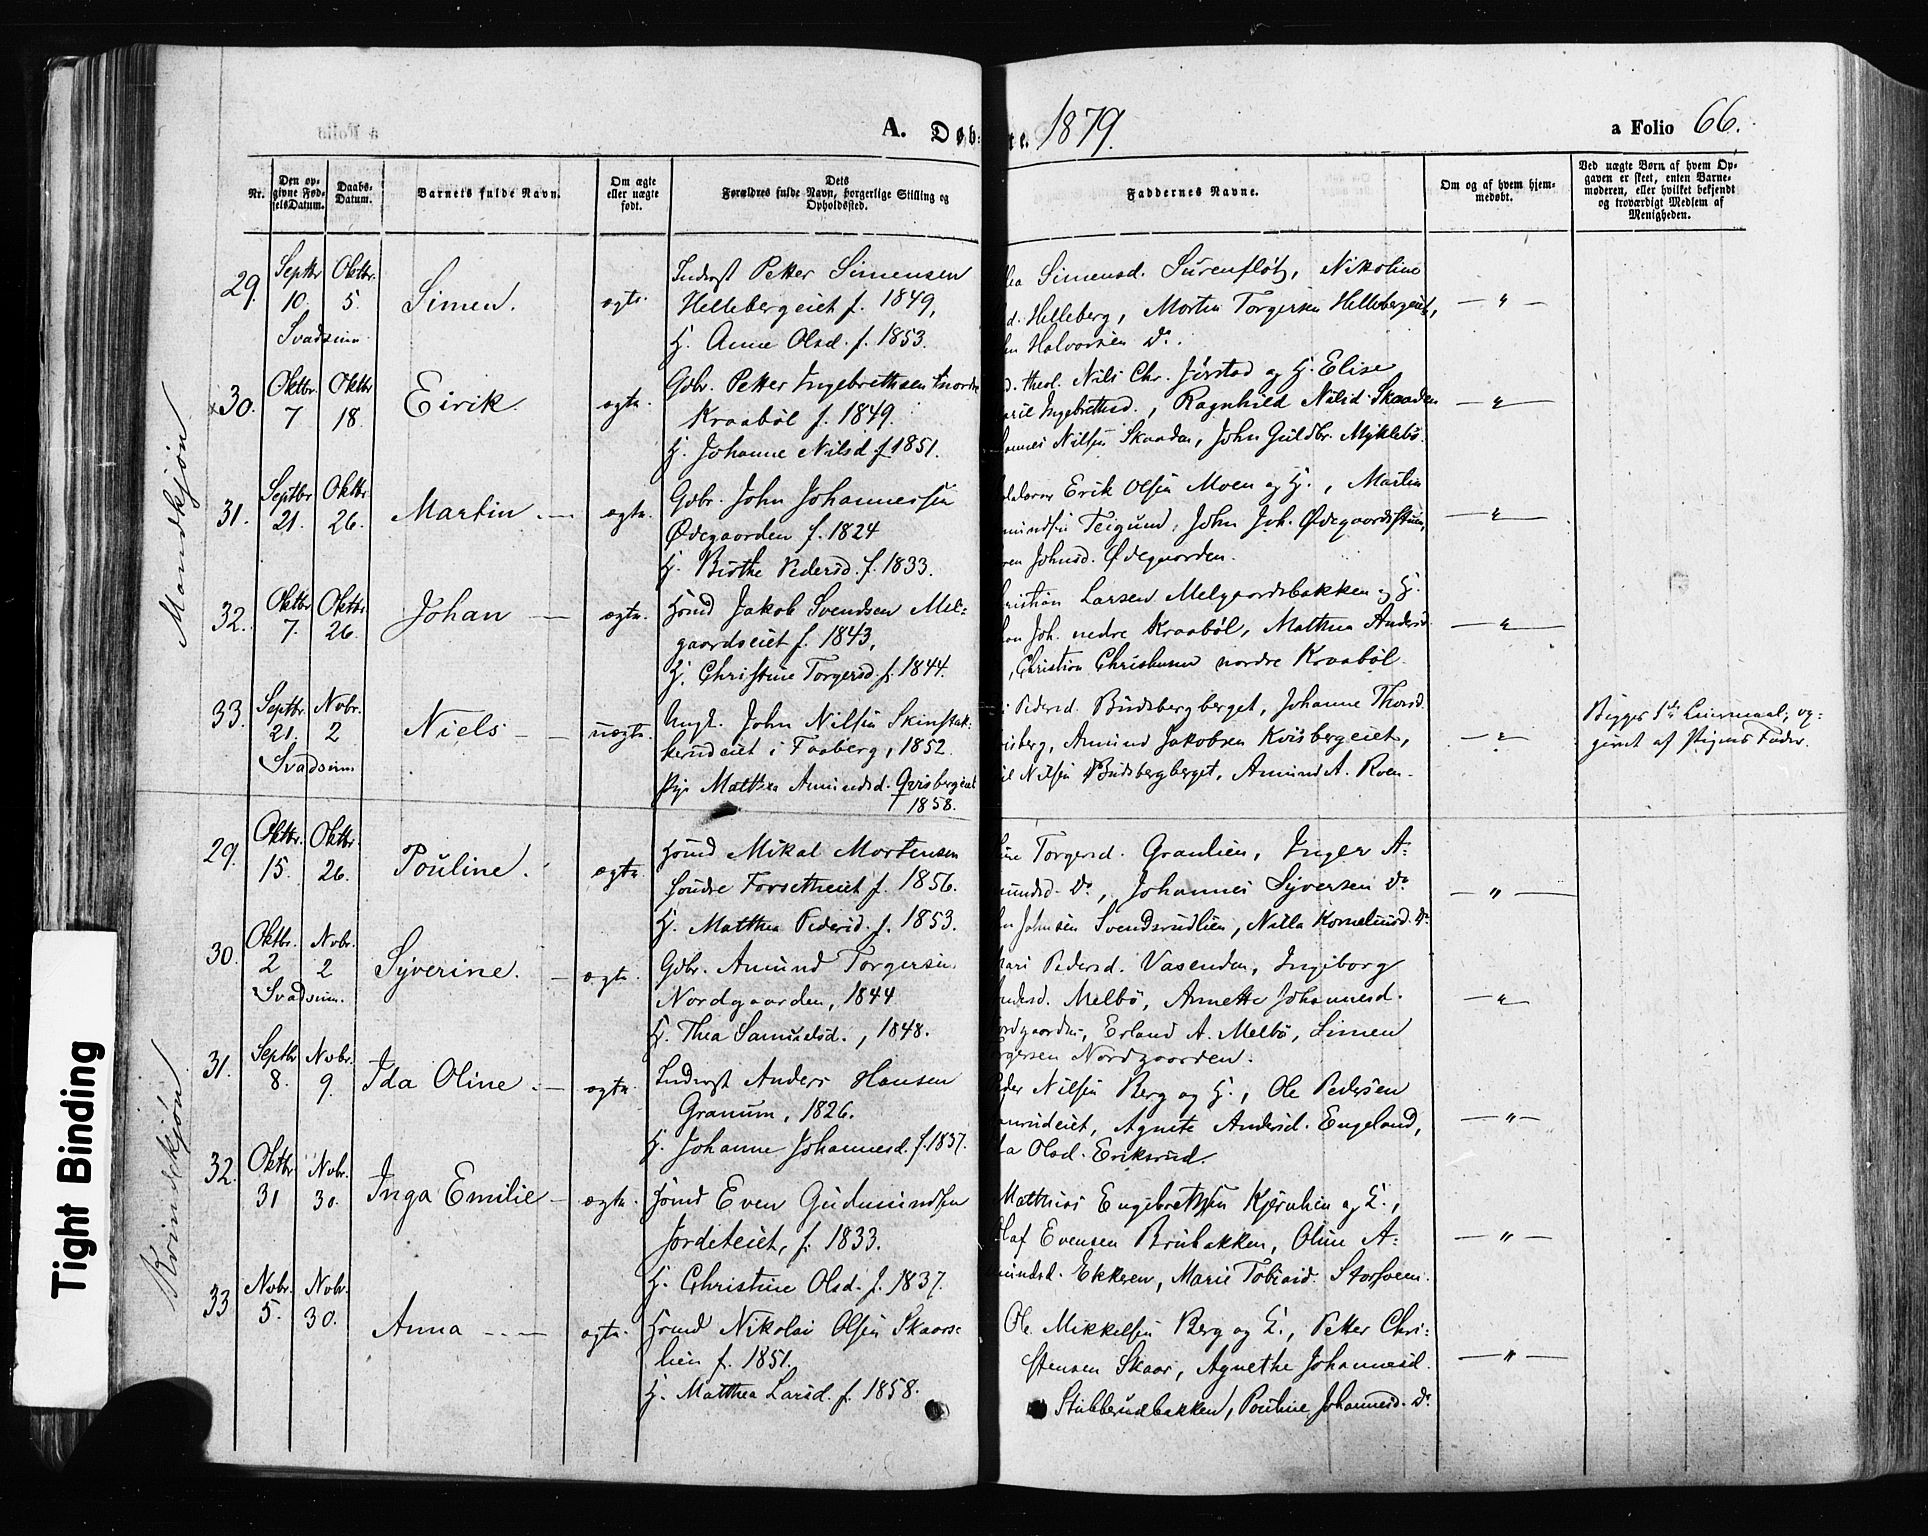 A. Døb te. 1879.
a Folio 66.
Nr. Den opgivne FødselsDatum. Daabs-Datum. Barnets fulde Navn. Om ægte eller uægte født. Dets Forældres fulde Navn, borgerlige Stilling og Opholdssted. Faddernes Navne. Om og af hvem hjemmedøbt. Ved uægte Børn af hvem Opgaven er skeet, enten Barnemoderen, eller hvilket bekjendt og troværdigt Medlem af Menigheden.
Mandkjøn
29. Septbr 10. Oktbr. 5. Simen. ægte. Inderst Petter Simensen
Hellebergeiet f. 1849,
Svadsum H. Anne Olsd. f. 1853.
Simensd. Surenflöt, Nikoline
d. Helleberg, Morten Torgersen Hellebergeiet,
Halvorsen Do. — " —
30. Oktbr. 7 Oktbr 18. Eirik. ægte. Gdbr. Petter Ingebrethsen nordre
Kraaböl f. 1849.
H. Johanne Nilsd. f. 1851.
theol. Nils Chr. Jörstad og H. Elise
Ingebrethsd., Ragnhild Nilsd. Skaaden
Nilsen Skaaden, John Guldbr. Myklebö. — " —
31. Septbr 21. Oktbr 26. Martin. — ægte. Gdbr. John Johannessen
Ødegaarden f. 1824
H. Birthe Pedersd. f. 1833.
Erik Olsen Moen og H., Martin
Teigum, John Joh. Ødegaardsstuen,
Johnsd. Ødegaarden. — " —
32. Oktbr. 7. Oktbr. 26. Johan — ægte. Hsmd Jakob Svendsen Mel-
gaardseiet f. 1843,
H. Christine Torgersd. f. 1844.
ristian Larsen Melgaardsbakken og H.
Joh. nedre Kraaböl, Mathea Andersd.
, Christian Christensen nordre Kraaböl. — " —
33. Septbr. 21. Novbr. 2 Niels — uægte. Ungk. John Nilsen Skinstak-
kerudeiet i Faaberg, 1852.
Svadsum Pige Mathea Amundsd. Qvisbergeiet
1858.
Pedersd. Budsbergberget, Johanne Thorsd.
isberg, Amund Jakobsen Kvisbergeiet,
Nilsen Budsbergberget, Amund A. Roen. — " —
Begges 1ste Leiermaal, op-
givet af Pigens Fader.
Kvindekjøn
29. Oktbr. 15. Oktbr. 26. Pouline. ægte. Hsmd Mikal Mortensen
söndre Forsetheiet f. 1856.
H. Matthea Pedersd. f. 1853.
ine Torgersd. Granlien, Inger A-
mundsd. Do, Johannes Syversen Do
Johnsen Svendsrudlien, Nilla Korneliusd. Do — " —
30. Oktbr. 2 Novbr. 2 Syverine. — ægte. Gdbr. Amund Torgersen
Svadsum. Nordgaarden, 1844
H. Thea Samuelsd., 1848.
Mari Pedersd. Vasenden, Ingiborg
ndersd. Melbö, Annette Johannesd.
ordgaarden, Erland A. Melbö, Simen
rgersen Nordgaarden. — " —
31. Septbr 8. Novbr. 9. Ida Oline. — ægte. Inderst Anders Hansen
Granum, 1826.
H. Johanne Johannesd. f. 1837.
eder Nilsen Berg og H., Ole Pedersen
rudeiet, Agnete Andersd. Engeland,
Olsd. Eriksrud. — " —
32. Oktbr. 31 Novbr. 30. Inga Emilie — ægte. Hsmd Even Gudmundsen
Jordeteiet, f. 1833.
H. Christine Olsd. f. 1837.
Matthias Engebretsen Kjernlien og H.,
Olaf Evensen Brubakken, Oline A-
mundsd. Ekkeren, Marie Tobiasd. Storsveen. — " —
33 Novbr. 5. Novbr. 30. Anna — — ægte. Hsmd Nikolai Olsen Skaars-
lien f. 1851.
H. Matthea Larsd. f. 1858.
Ole Mikkelsen Berg og H., Petter Chri-
stensen Skaar, Agnethe Johannesd.
Stubberudbakken, Pouline Johannesd. Do — " —
Tight Binding